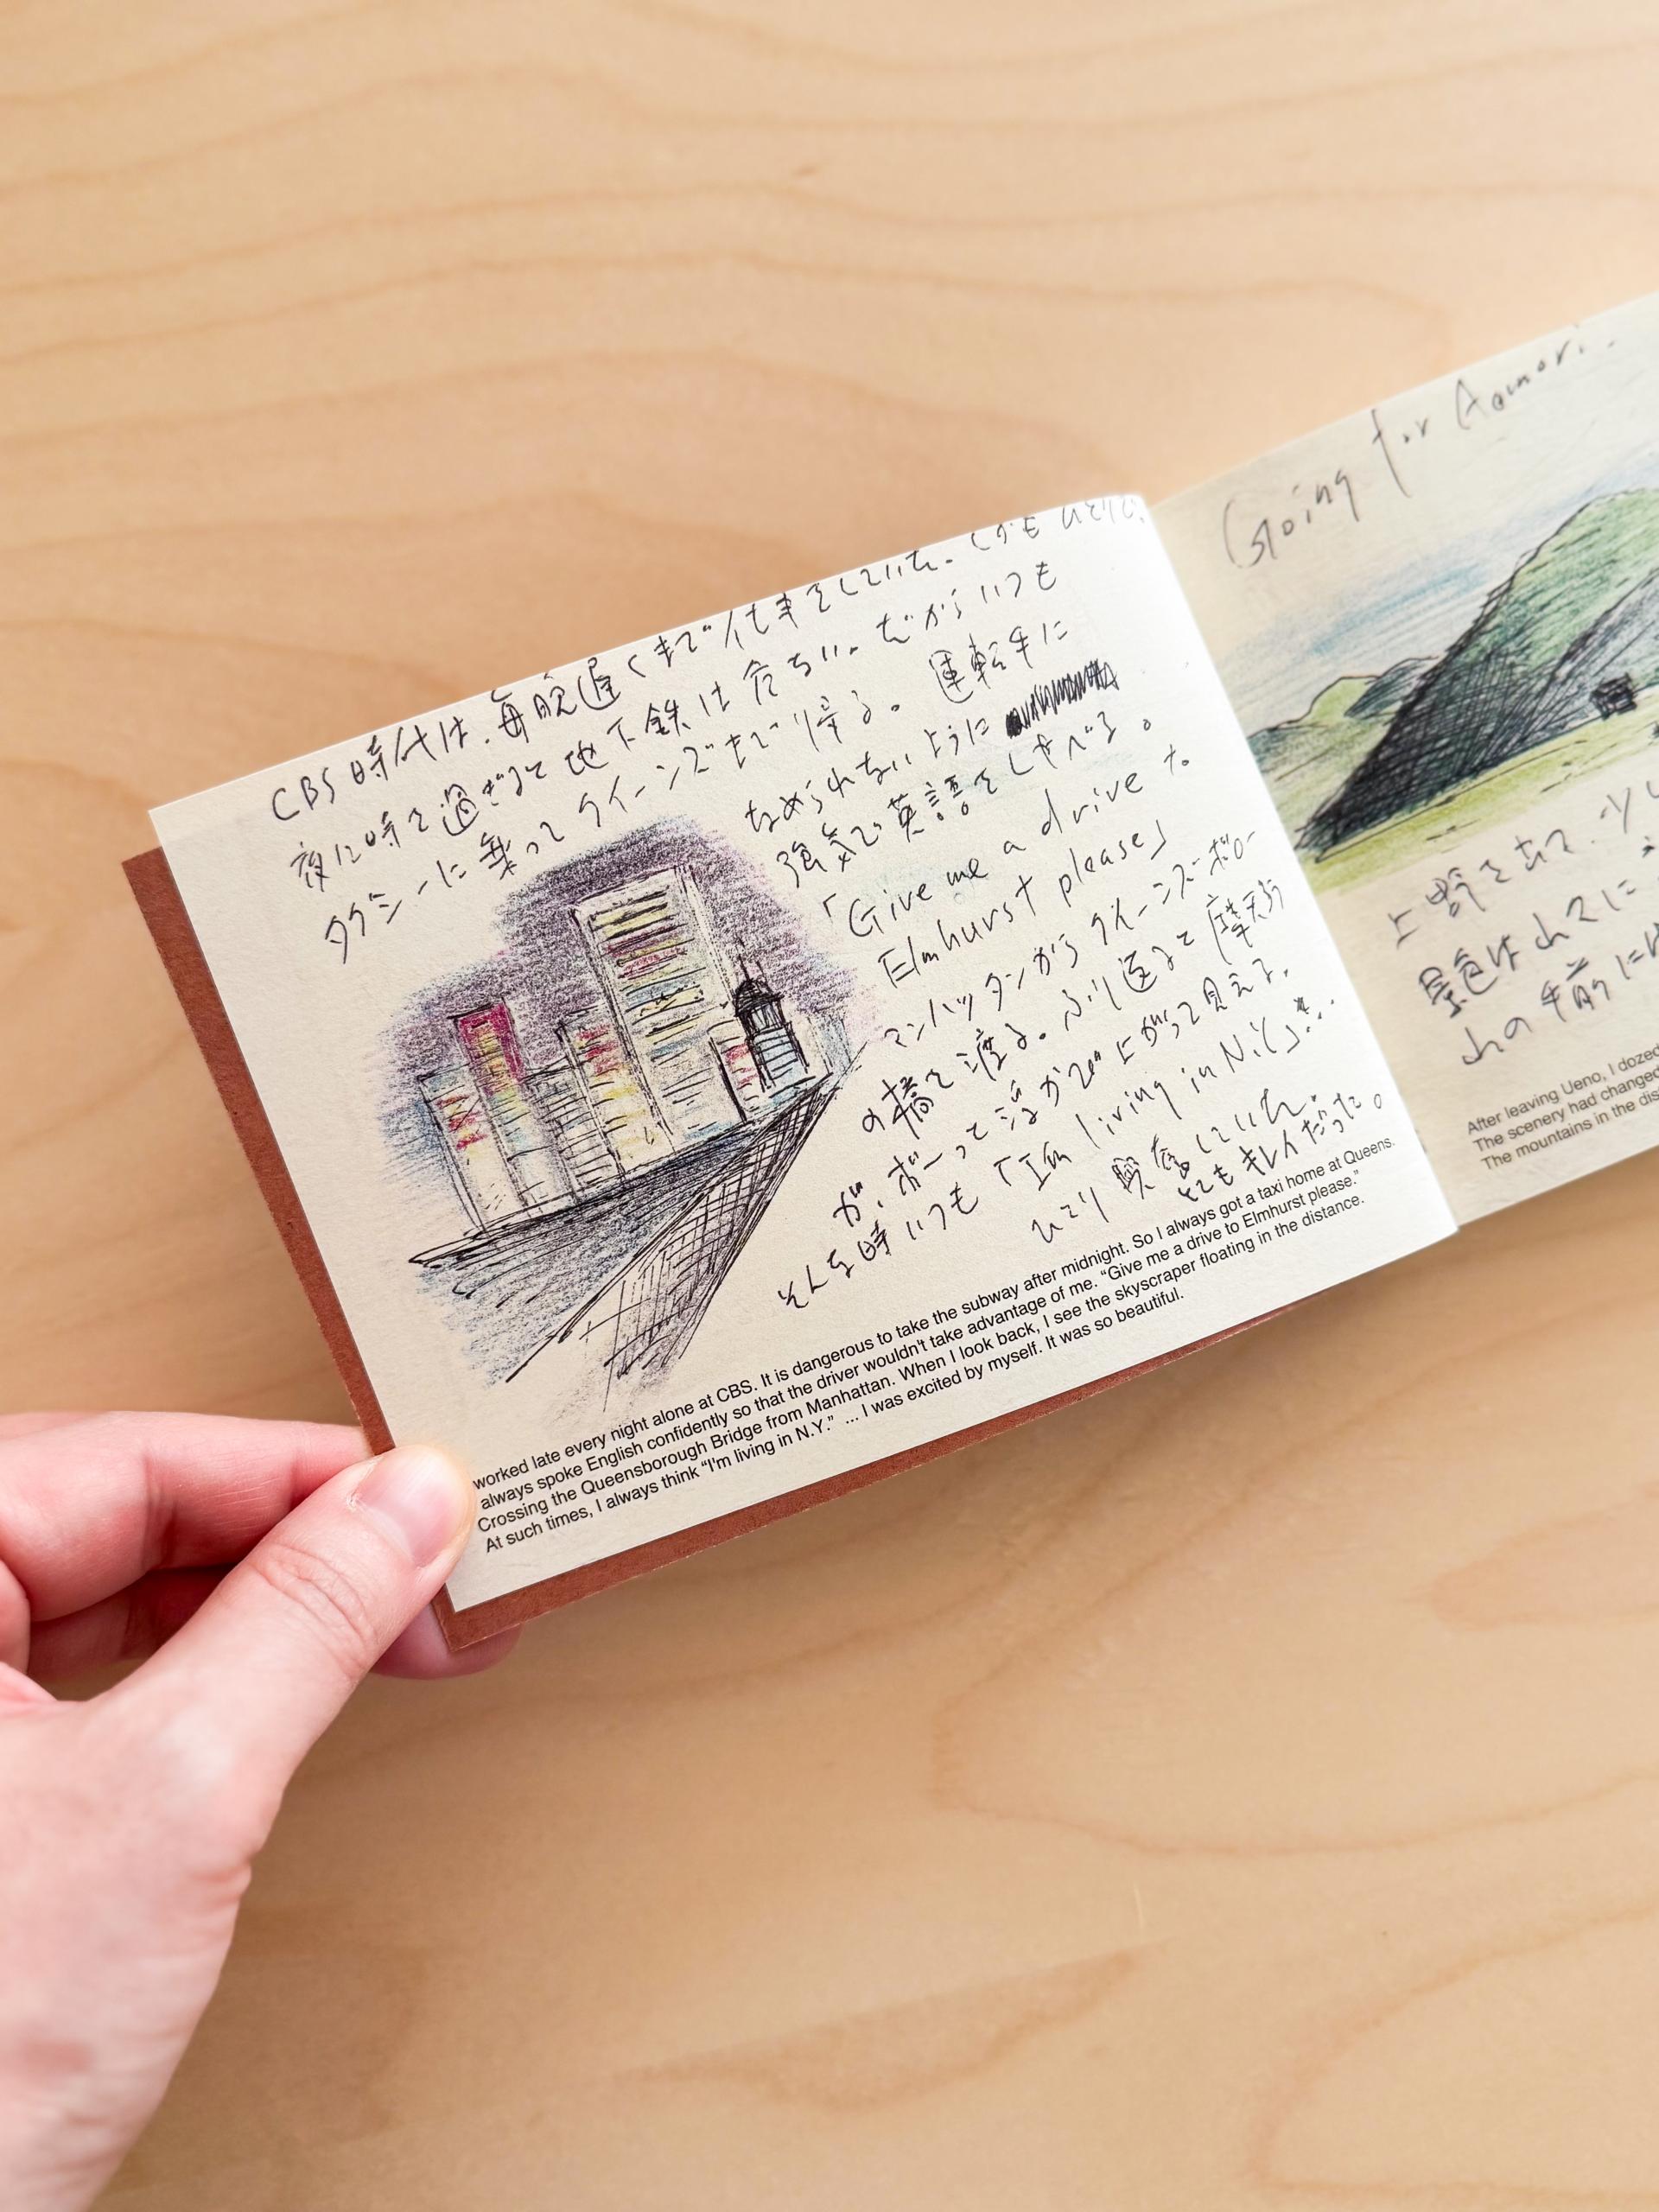 CBS時代は、毎晩遅くまで仕事をしていた。しかもひとりで。
夜12時を過ぎると地下鉄は危ない。だからいつも
タクシーに乗ってクイーンズまで帰る。運転手に
なめられないように
強気で英語をしゃべる。
「Give me a drive to
Elmhurst please」
マンハッタンからクイーンズボロー
の橋を渡る。ふり返ると摩天楼
が、ボーっと浮かび上がって見える。
そんな時いつも「I'm living in N.Y.」...
ひとり興奮していた。
とてもキレイだった。
worked late every night alone at CBS. It is dangerous to take the subway after midnight. So I always got a taxi home at Queens.
always spoke English confidently so that the driver wouldn't take advantage of me. “Give me a drive to Elmhurst please.”
Crossing the Queensborough Bridge from Manhattan. When I look back, I see the skyscraper floating in the distance.
At such times, I always think “I'm living in N.Y.” ... I was excited by myself. It was so beautiful.
Going for Aomori.
上野を出て、少し
景色は
山の手前には
After leaving Ueno, I dozed
The scenery had changed
The mountains in the dis